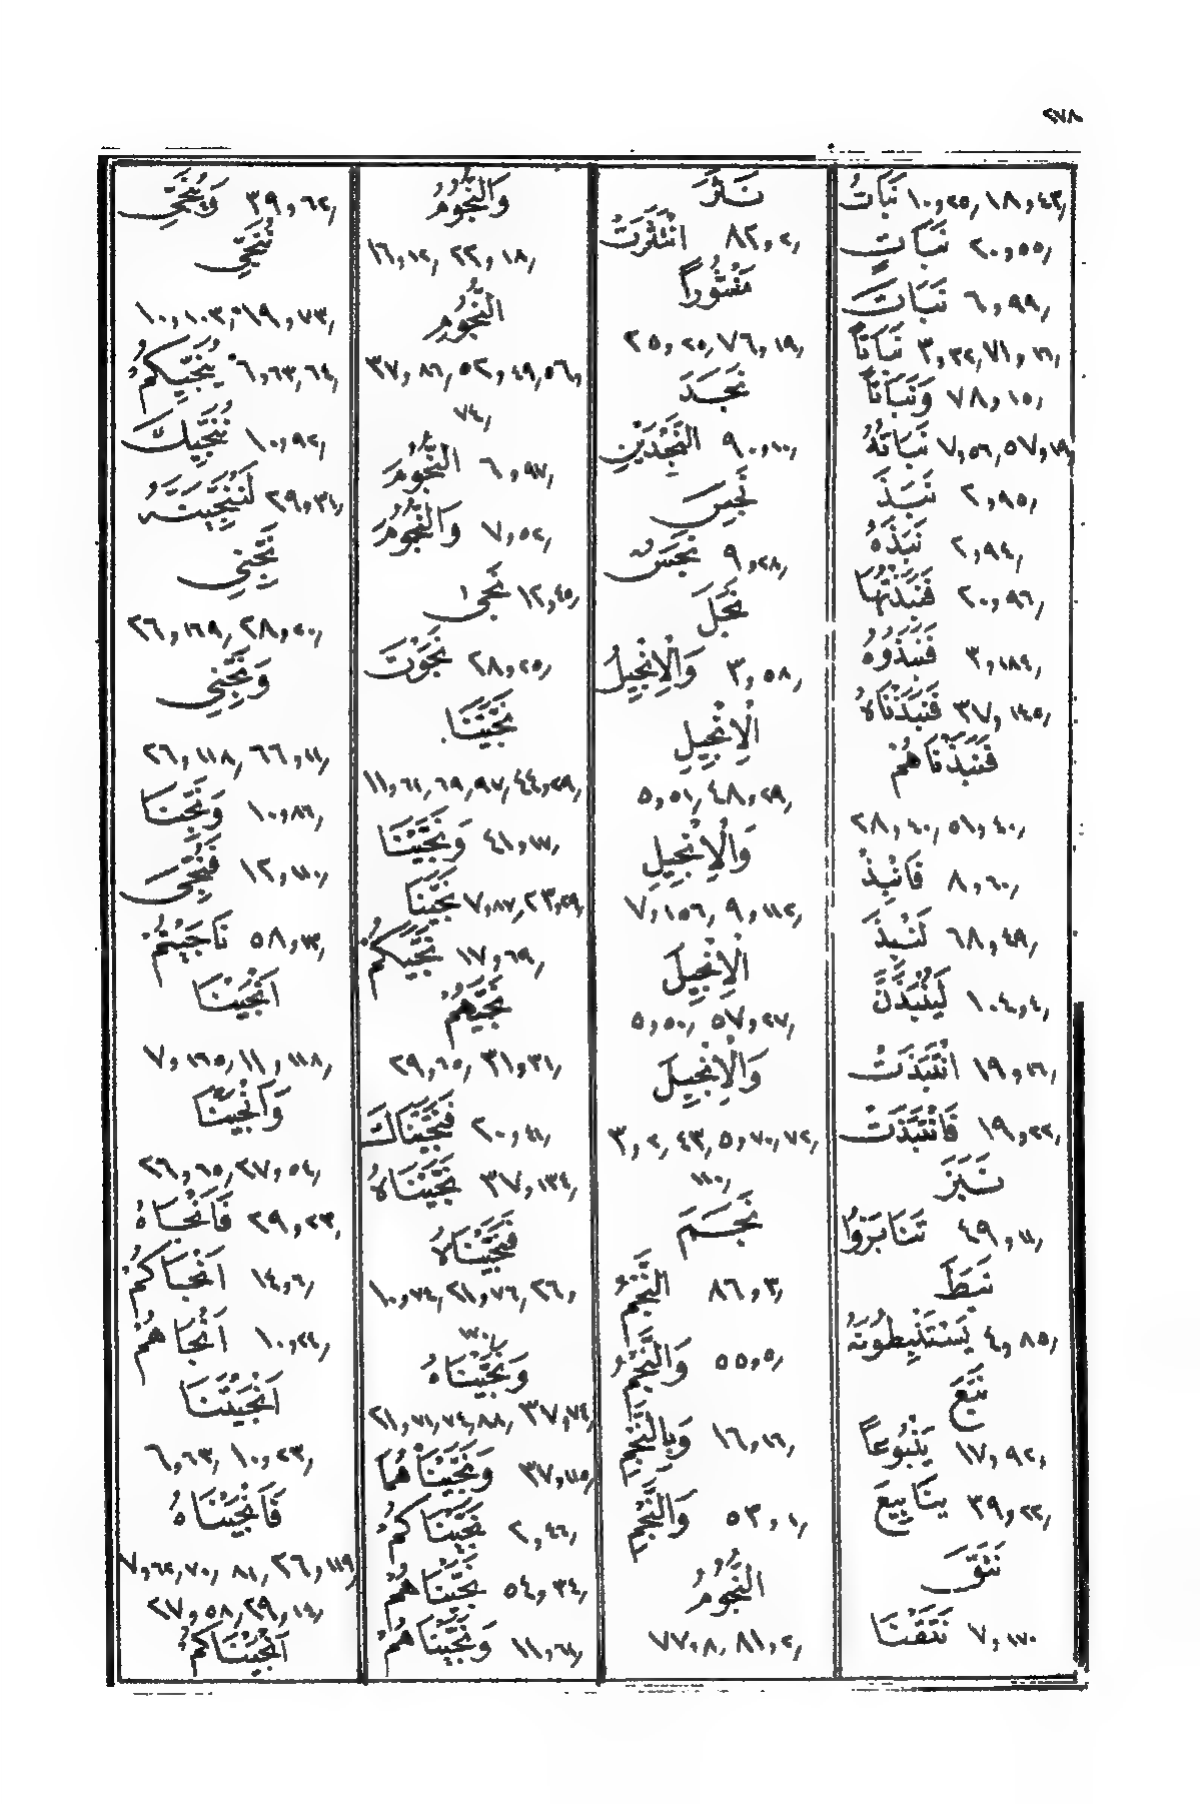 ٢٧٨
نَبَاتُ ١٠,٢٥,١٨,٤٣,
نَبَاتٍ ٢٠,٥٥,
نَبَاتَ ٦,٩٩,
نَبَاتاً ٣,٣٢,٧١,١٦,
وَنَبَاتاً ٧٨,١٥,
نَبَاتُهُ ٧,٥٦,٥٧,١٩,
نَبَذَ ٢,٩٥,
نَبَذَهُ ٢,٩٤,
فَنَبَذْتُهَا ٢٠,٩٦,
فَنَبَذُوهُ ٣,١٨٤,
فَنَبَذْنَاهُ ٣٧,١٤٥,
فَنَبَذْنَاهُمْ
٢٨,٤٠,٥١,٤٠,
فَانْبِذْ ٨,٦٠,
لَنُبِذَ ٦٨,٤٩,
لَيُنْبَذَنَّ ١٠٤,٤,
انْتَبَذَتْ ١٩,١٦,
فَانْتَبَذَتْ ١٩,٢٢,
نَبَزَ
تَنَابَزُوا ٤٩,١١,
نَبَطَ
يَسْتَنْبِطُونَهُ ٤,٨٥,
نَبَعَ
يَنْبُوعاً ١٧,٩٢,
يَنَابِيعَ ٣٩,٢٢,
نَتَقَ
نَتَقْنَا ٧,١٧٠
نَثَرَ
انْتَثَرَتْ ٨٢,٢,
مَنْثُوراً
٢٥,٢٥,٧٦,١٩,
نَجَدَ
النَّجْدَيْنِ ٩٠,١٠,
نَجِسَ
نَجَسٌ ٩,٢٨,
نَجَلَ
وَالْاِنْجِيلُ ٣,٥٨,
الْاِنْجِيلِ
٥,٥١,٤٨,٢٩,
وَالْاِنْجِيلِ
٧,١٥٦,٩,١١٢,
الْاِنْجِيلَ
٥,٥٠,٥٧,٢٧,
وَالْاِنْجِيلَ
٣,٢,٤٣,٥,٧٠,٧٢,
١١٠,
نَجَمَ
النَّجْمُ ٨٦,٣,
وَالنَّجْمُ ٥٥,٥,
وَبِالنَّجْمِ ١٦,١٦,
وَالنَّجْمِ ٥٣,١,
النُّجُومُ
٧٧,٨,٨١,٢,
وَالنُّجُومُ
١٦,١٢,٢٢,١٨,
النُّجُومِ
٣٧,٨٦,٥٢,٤٩,٥٦,
٧٤,
النُّجُومَ ٦,٩٧,
وَالنُّجُومَ ٧,٥٢,
نَجَىٰ ١٢,٤٥,
نَجَوْتَ ٢٨,٢٥,
نَجَّيْنَا
١١,٦١,٦٩,٩٧,٤٤,٢٩,
وَنَجَّيْنَا ٤١,١٧,
نَجَّيْنَا ٧,٨٧,٢٣,٢٩,
نَجَّيكُمْ ١٧,٦٩,
نَجَّيهُمْ
٢٩,٦٥,٣١,٣١,
فَنَجَّيْنَاكَ ٢٠,٤١,
نَجَّيْنَاهُ ٣٧,١٣٤,
فَنَجَّيْنَاهُ
١٠,٧٤,٢١,٧٦,٢٦,
١٧٠,
وَنَجَّيْنَاهُ
٢١,٧١,٧٤,٨٨,٣٧,٧٤,
وَنَجَّيْنَاهُمَا ٣٧,١١٥,
نَجَّيْنَاكُمْ ٢,٤٦,
نَجَّيْنَاهُمْ ٥٤,٣٤,
وَنَجَّيْنَاهُمْ ١١,٦١,
وَيُنَجِّي ٣٩,٦٢,
نُنَجِّي
١٠,١٠٣,١٩,٧٣,
يُنَجِّيكُمْ ٦,٦٣,٦٤,
نُنَجِّيكَ ١٠,٩٢,
لَنُنَجِّيَنَّهُ ٢٩,٣١,
نَجِّنِي
٢٦,١٦٩,٢٨,٢٠,
وَنَجِّنِي
٢٦,١١٨,٦٦,١١,
وَنَجِّنَا ١٠,٨٦,
فَنُجِّيَ ١٢,١١٠,
نَاجَيْتُمُ ٥٨,١٣,
اَنْجَيْنَا
٧,١٦٥,١١,١١٨,
وَاَنْجَيْنَا
٢٦,٦٥,٢٧,٥٤,
فَاَنْجَاهُ ٢٩,٢٣,
اَنْجَاكُمْ ١٤,٦,
اَنْجَاهُمْ ١٠,٢٤,
اَنْجَيْتَنَا
٦,٦٣,١٠,٢٣,
فَاَنْجَيْنَاهُ
٧,٦٢,٧٠,٨١,٢٦,١١٩,
٢٧,٥٨,٢٩,١٤,
اَنْجَيْنَاكُمْ